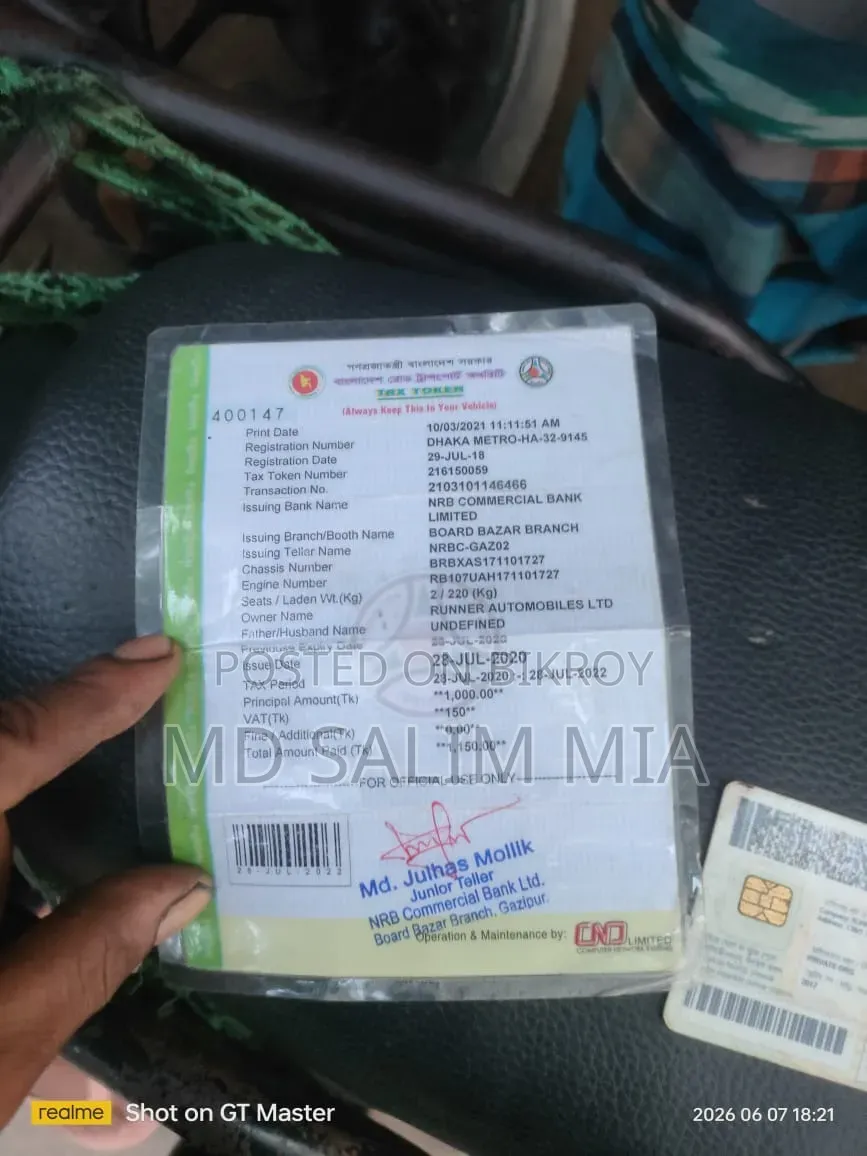 গণপ্রজাতন্ত্রী বাংলাদেশ সরকার
বাংলাদেশ রোড ট্রান্সপোর্ট অথরিটি
TAX TOKEN
(Always Keep This In Your Vehicle)
400147
Print Date 10/03/2021 11:11:51 AM
Registration Number DHAKA METRO-HA-32-9145
Registration Date 29-JUL-18
Tax Token Number 216150059
Transaction No. 2103101146466
Issuing Bank Name NRB COMMERCIAL BANK
LIMITED
Issuing Branch/Booth Name BOARD BAZAR BRANCH
Issuing Teller Name NRBC-GAZ02
Chassis Number BRBXAS171101727
Engine Number RB107UAH171101727
Seats / Laden Wt.(Kg) 2 / 220 (Kg)
Owner Name RUNNER AUTOMOBILES LTD
Father/Husband Name UNDEFINED
Previous Expiry Date 28-JUL-2020
Issue Date 28-JUL-2020
TAX Period 28-JUL-2020 -:- 28-JUL-2022
Principal Amount(Tk) **1,000.00**
VAT(Tk) **150**
Fine / Additional(Tk) **0.00**
Total Amount Paid (Tk) **1,150.00**
FOR OFFICIAL USE ONLY
28-JUL-2022
Md. Julhas Mollik
Junior Teller
NRB Commercial Bank Ltd.
Board Bazar Branch, Gazipur.
Operation & Maintenance by: CND LIMITED
POSTED ON BIKROY
MD SALIM MIA
2017
realme Shot on GT Master
2026 06 07 18:21